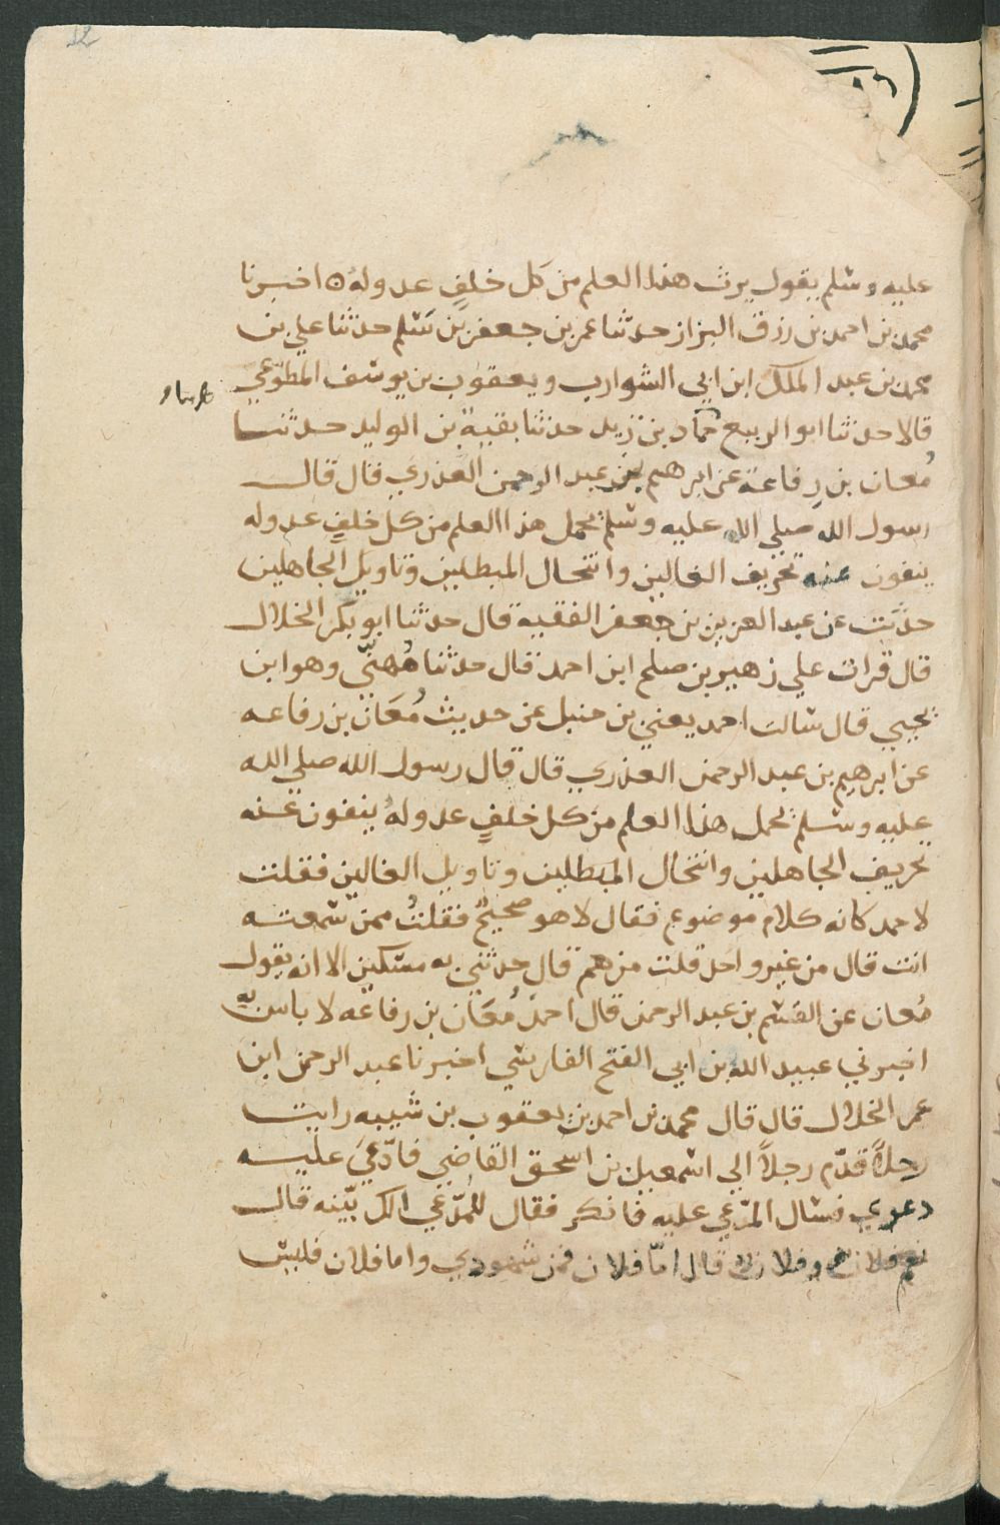 عليه وسلم يقول يرث هذا العلم من كل خلف عدوله ۞ اخبرنا
محمد بن احمد بن رزق البزاز حدثنا عمر بن جعفر بن سَلم حدثنا علي بن
محمد بن عبد الملك ابن ابي الشوارب ويعقوب بن يوسف المطوّعي
قالا حدثنا ابو الربيع حماد بن زيد حدثنا بقية بن الوليد حدثنا
مُعان بن رِفاعة عن ابرهيم بن عبد الرحمن العذري قال قال
رسول الله صلى الله عليه وسلم يحمل هذا العلم من كل خلفٍ عدوله
ينفون عنه تحريف الغالين وانتحال المبطلين وتاويل الجاهلين
حدّثت عن عبد العزيز بن جعفر الفقيه قال حدثنا ابو بكر الخلال
قال قرات علي زهير بن صلح ابن احمد قال حدثنا مُهنّي وهو ابن
يحيي قال سالت احمد يعني بن حنبل عن حديث مُعَان بن رفاعه
عن ابرهيم بن عبد الرحمن العذري قال قال رسول الله صلي الله
عليه وسلم يحمل هذا العلم من كل خلفٍ عدولهُ ينفون عنه
تحريف الجاهلين وانتحال المبطلين وتاويل الغالين فقلت
لاحمد كانه كلام موضوع فقال لا هو صحيحٌ فقلتُ ممن سمعته
انت قال من غير واحد قلت من هم قال حدثني به مسكين الا انه يقول
مُعان عن القسم بن عبد الرحمن قال احمدُ مُعَان بن رفاعه لا باس به
اخبرني عبيد الله بن ابي الفتح الفارسي اخبرنا عبد الرحمن ابن
عمر الخلال قال قال محمد بن احمد بن يعقوب بن شيبه رايت
رجلاً قدّم رجلاً الي اسمعيل بن اسحق القاضي فادّعيَ عليه
دعوي فسال المدّعي عليه فانكر فقال للمُدّعي الك بيّنه قال
نعم فلان وفلان قال امّا فلان فمن شهودي واما فلان فليس